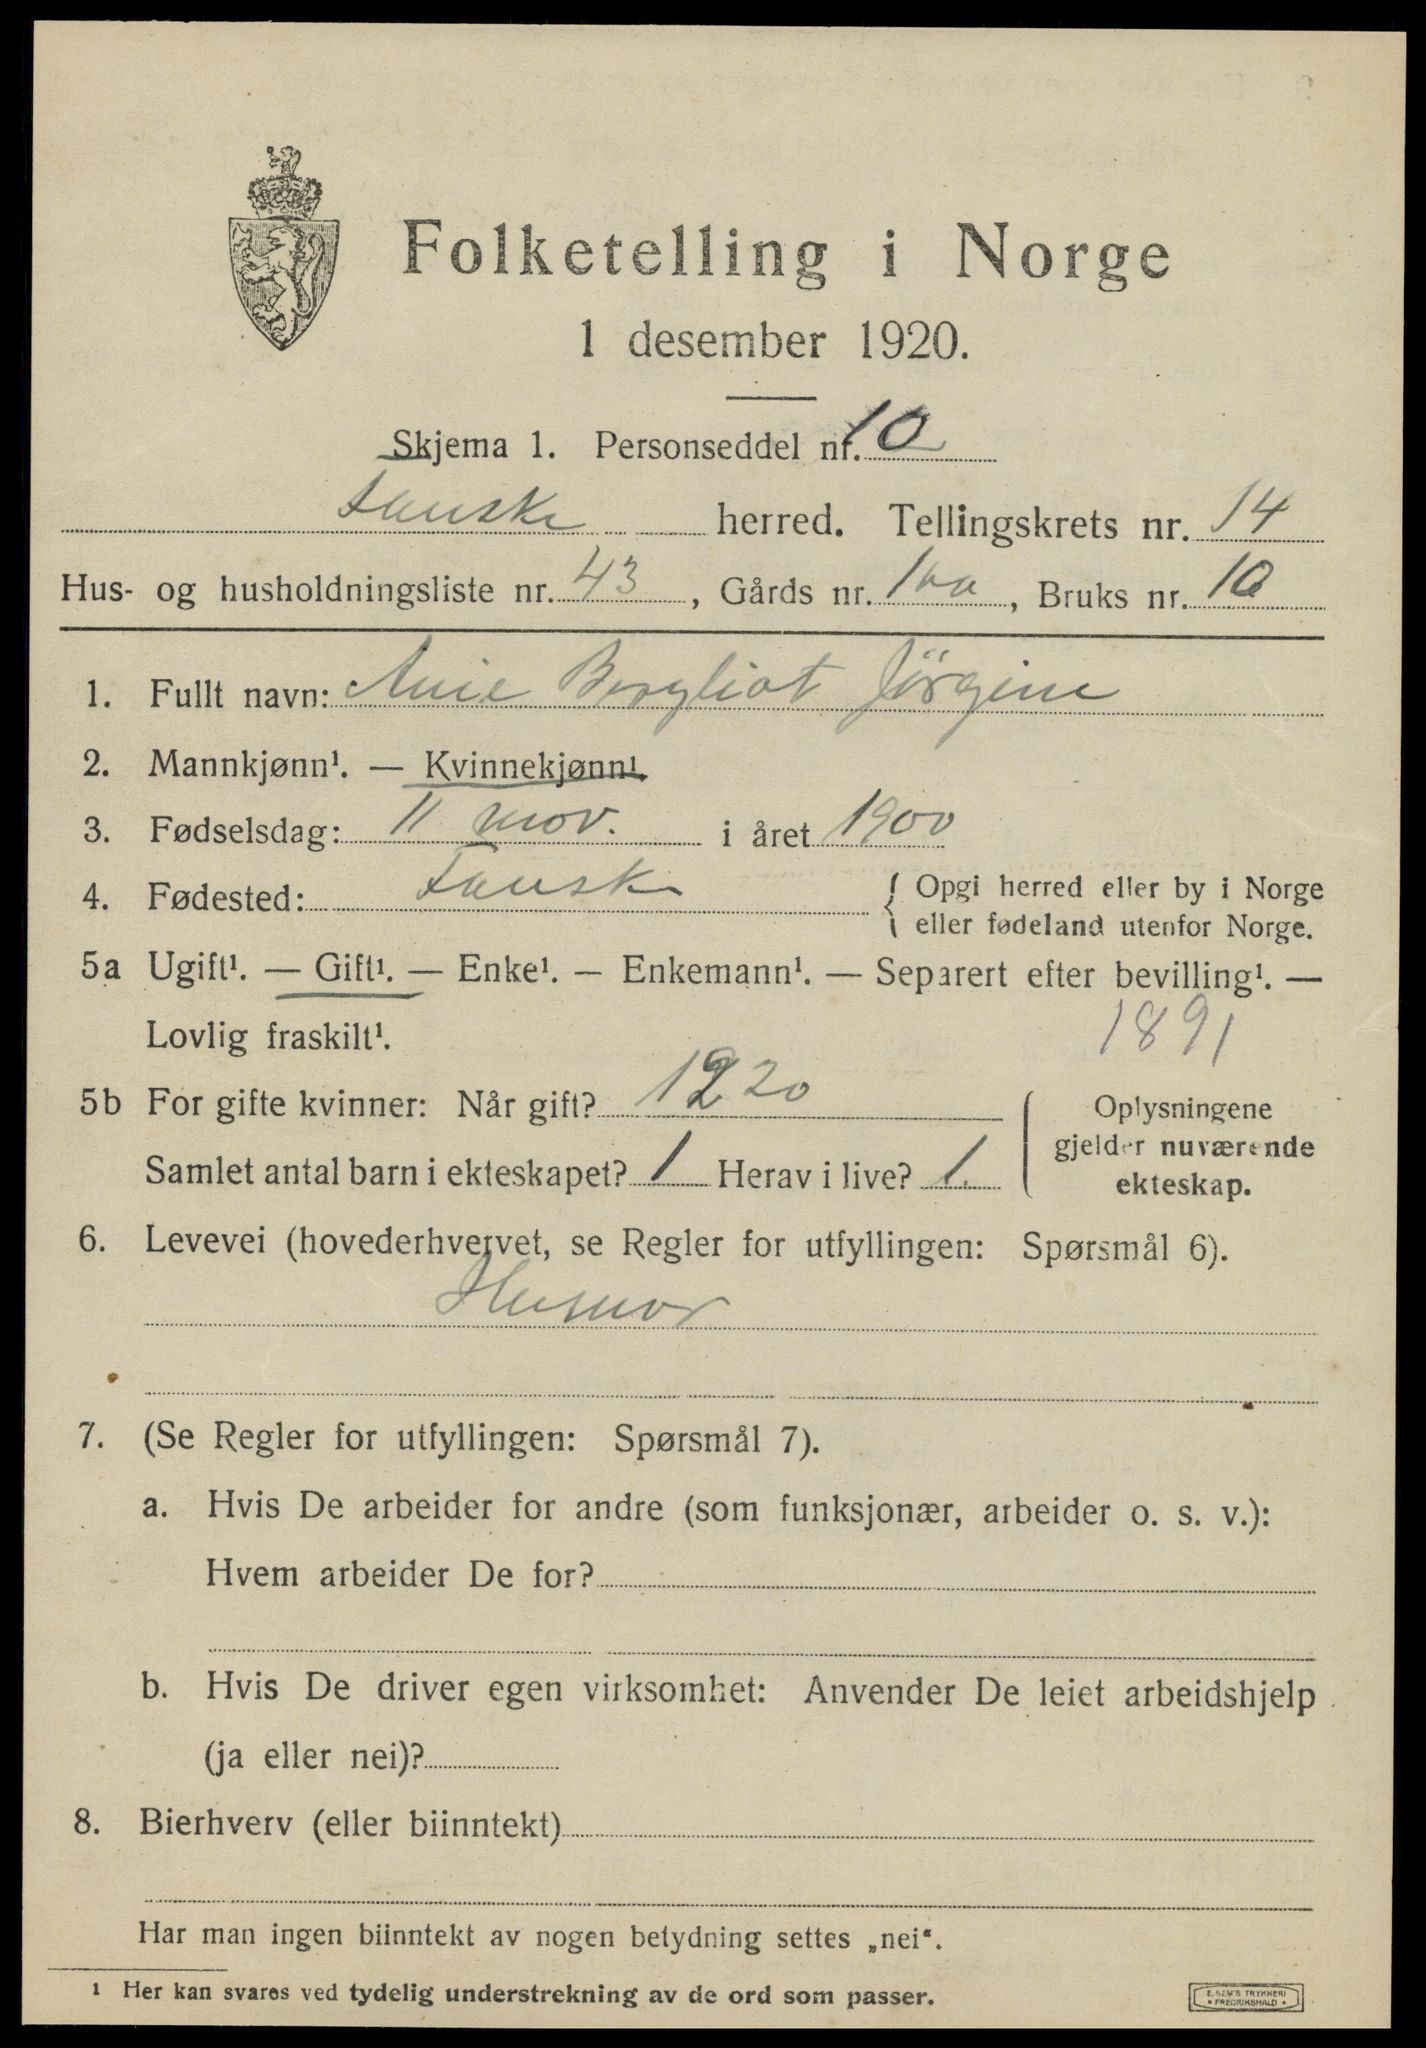 Folketelling i Norge
1 desember 1920.
Skjema 1. Personseddel nr. 10
Fauske herred. Tellingskrets nr. 14
Hus- og husholdningsliste nr. 43, Gårds nr. 100, Bruks nr. 10
1. Fullt navn: Anie Bergliot Jörgine
2. Mannkjønn¹. — Kvinnekjønn¹.
3. Fødselsdag: 11 nov. i året 1900
4. Fødested: Fauske { Opgi herred eller by i Norge
eller fødeland utenfor Norge.
5a Ugift¹. — Gift¹. — Enke¹. — Enkemann¹. — Separert efter bevilling¹. —
Lovlig fraskilt¹. 1891
5b For gifte kvinner: Når gift? 1920
Samlet antal barn i ekteskapet? 1 Herav i live? 1.
Oplysningene
gjelder nuværende
ekteskap.
6. Levevei (hovederhvervet, se Regler for utfyllingen: Spørsmål 6).
Husmor
7. (Se Regler for utfyllingen: Spørsmål 7).
a. Hvis De arbeider for andre (som funksjonær, arbeider o. s. v.):
Hvem arbeider De for?
b. Hvis De driver egen virksomhet: Anvender De leiet arbeidshjelp
(ja eller nei)?
8. Bierhverv (eller biinntekt)
Har man ingen biinntekt av nogen betydning settes „nei“.
¹ Her kan svares ved tydelig understrekning av de ord som passer.
E. SEM'S TRYKKERI
• FREDRIKSHALD •